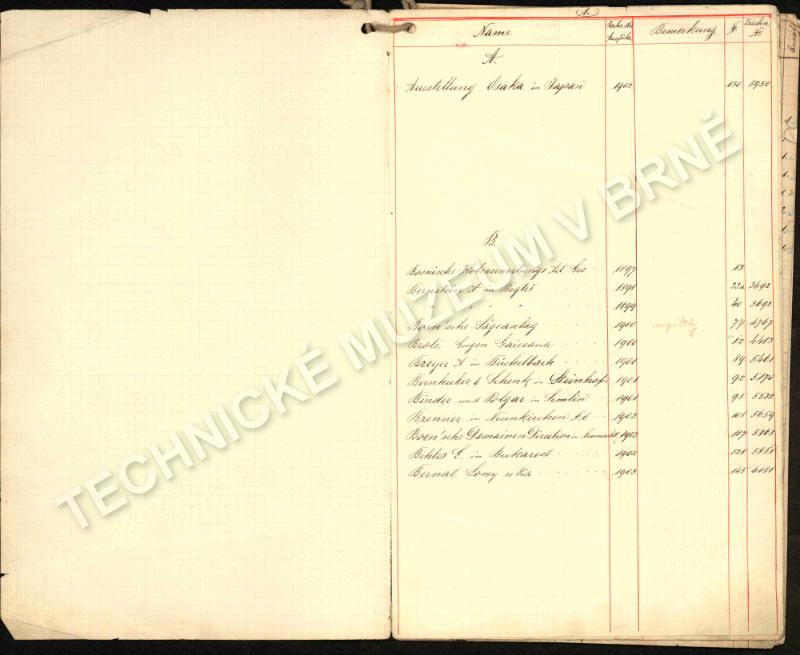 1.
Name Jahr der Ausfuhr Bemerkung № Zeichn. №
A.
Ausstellung Osaka in Japan 1902 130 5950
B.
Bosnische Holzverwertungs Act Ges. 1897 13
Bernstein A in 1898 33a 3692
" " " " 1899 40 3692
Born'sche Sägeanlag 1900 77 4767
Brote Eugen 1900 82 4483
Breyer A in Büchelbach 1901 89 5461
& Schenk in Steinhof 1901 92 5170
Binder und Polgar in Semlin 1901 95 5532
Brenner in Neunkirchen N.Ö 1902 108 5659
Born'sche Domainen Direction in 1902 117 5868
L. in Bukarest 1902 128 5881
Bernat Lowy 1903 148 6081
TECHNICKÉ MUZEUM V BRNĚ